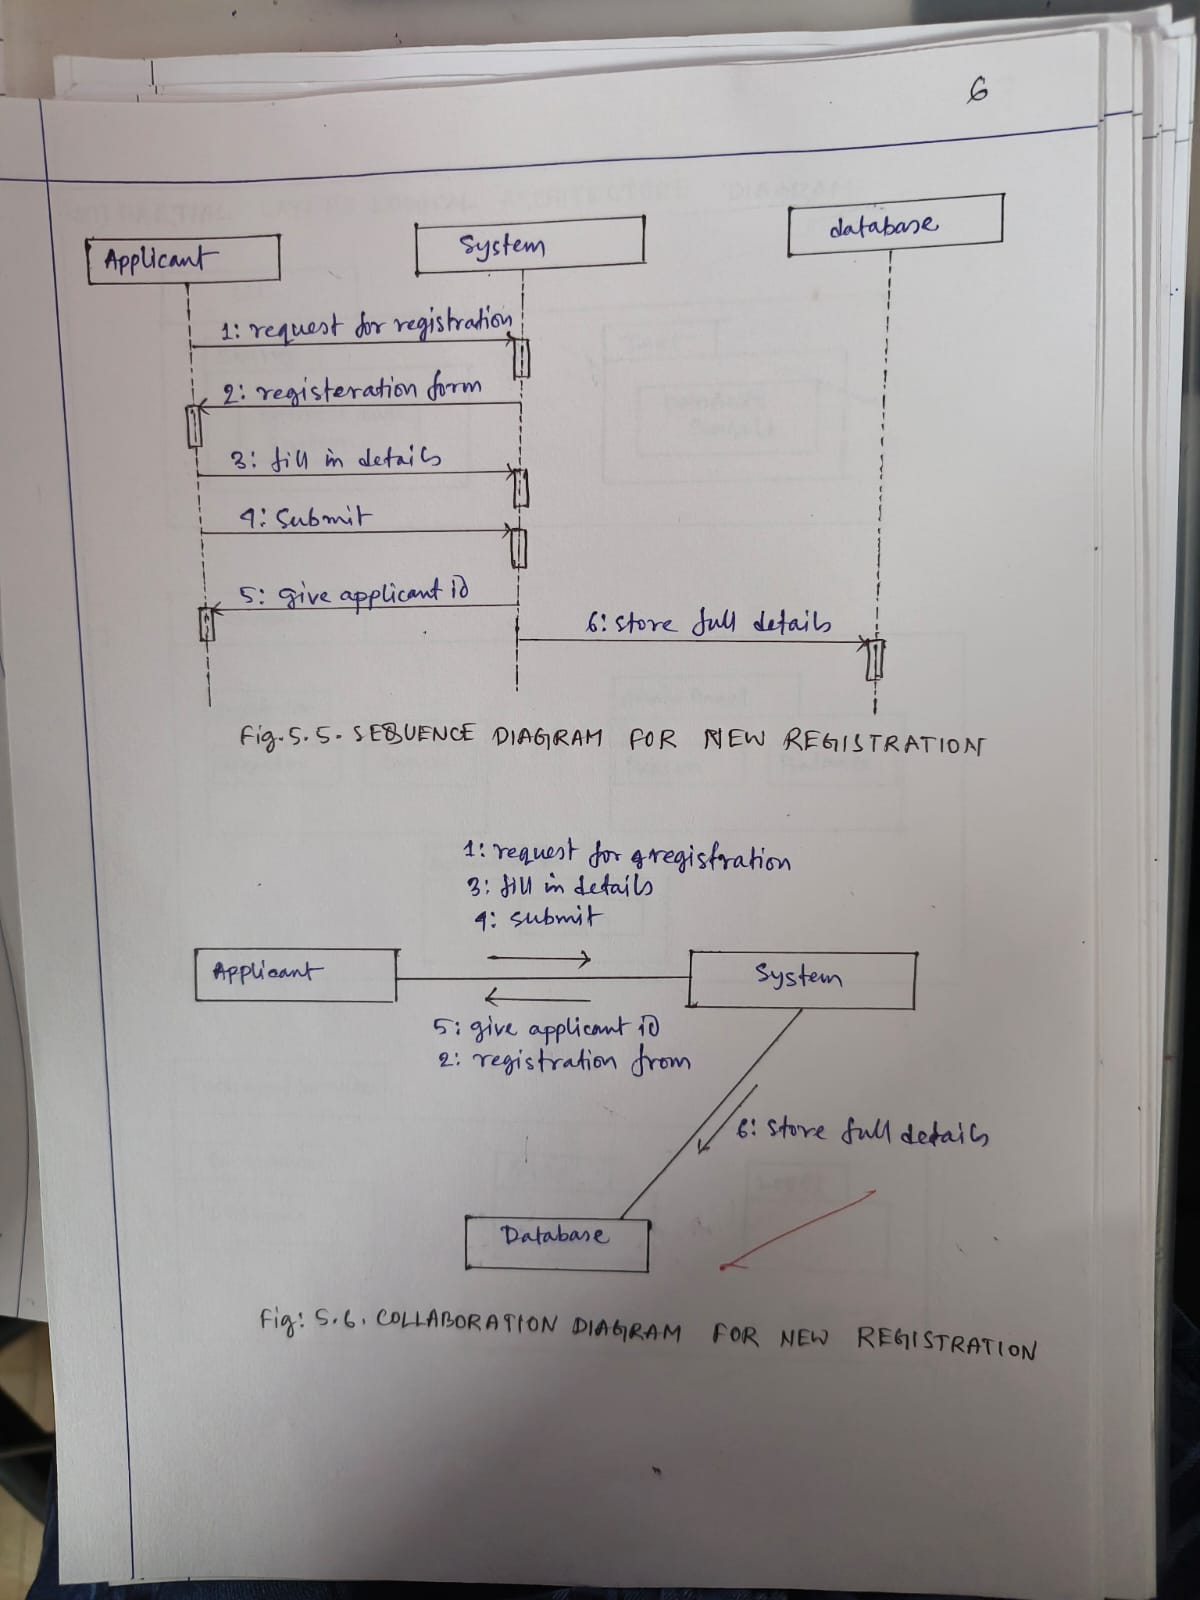 6
Applicant
System
database
1: request for registration
2: registeration form
3: fill in details
4: Submit
5: give applicant id
6: store full details
Fig. 5.5. SEQUENCE DIAGRAM FOR NEW REGISTRATION
1: request for registration
3: fill in details
4: submit
Applicant
System
5: give applicant id
2: registration from
6: store full details
Database
Fig: 5.6. COLLABORATION DIAGRAM FOR NEW REGISTRATION